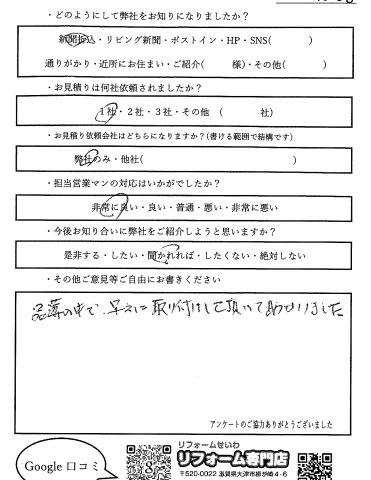 ・どのようにして弊社をお知りになりましたか？
新聞折込・リビング新聞・ポストイン・HP・SNS(　　　　)
通りがかり・近所にお住まい・ご紹介(　　　様)・その他(　　　　)
・お見積りは何社依頼されましたか？
1社・2社・3社・その他　(　　　　社)
・お見積り依頼会社はどちらになりますか？(書ける範囲で結構です)
弊社のみ・他社(　　　　　　　　　　　　　　)
・担当営業マンの対応はいかがでしたか？
非常に良い・良い・普通・悪い・非常に悪い
・今後お知り合いに弊社をご紹介しようと思いますか？
是非する・したい・聞かれれば・したくない・絶対しない
・その他ご意見等ご自由にお書きください
品薄の中で、早々に取り付けして頂いて助かりました
アンケートのご協力ありがとうございました
Google 口コミ
リフォームせいわ
リフォーム専門店
〒520-0022 滋賀県大津市柳が崎4-6